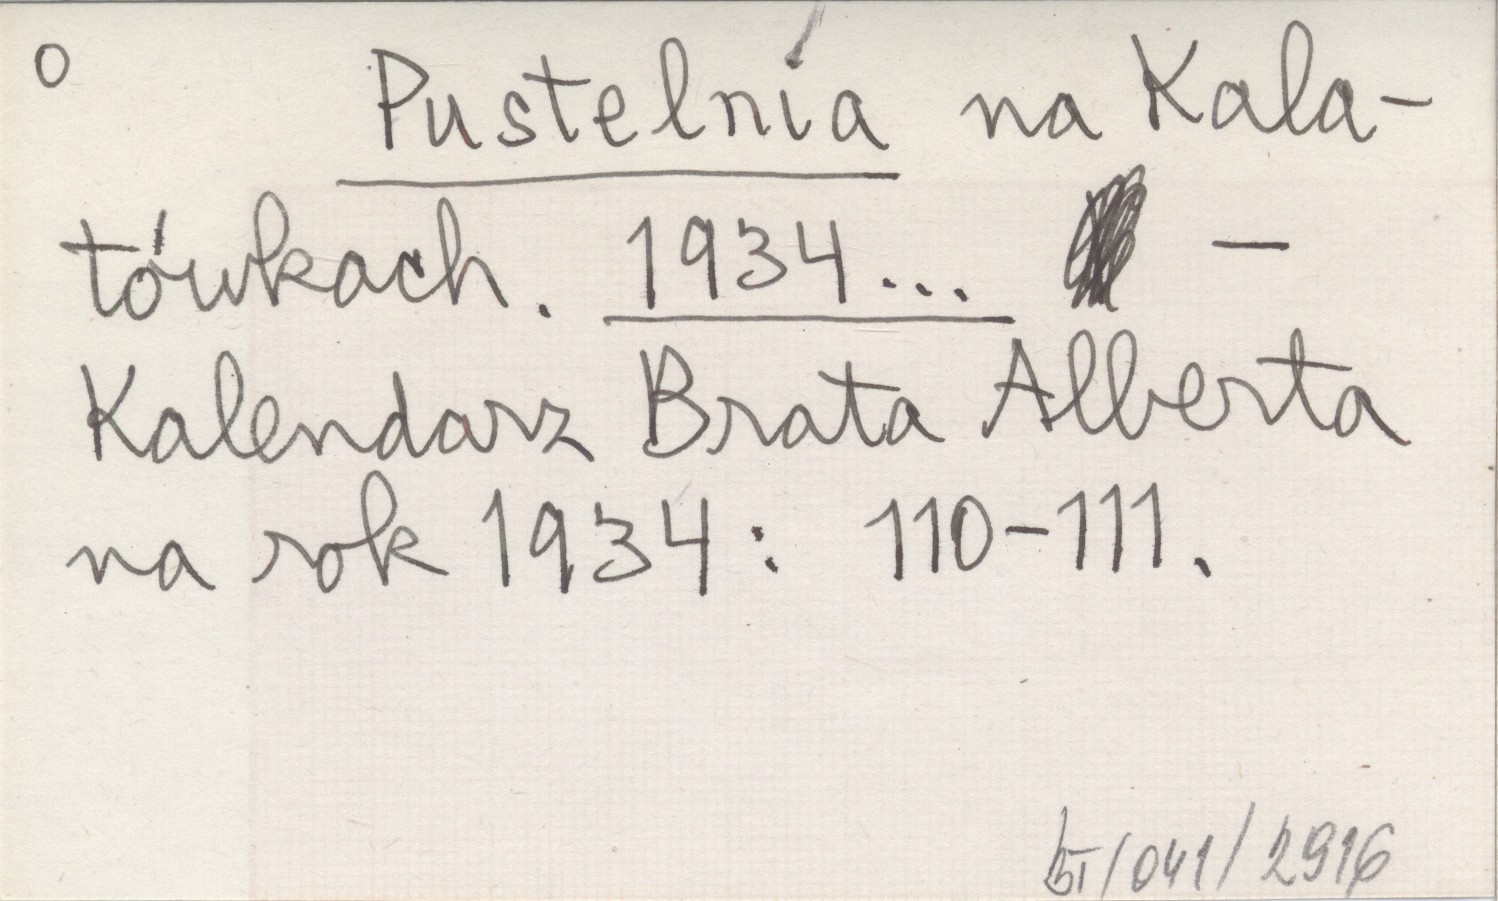 O Pustelnia na Kala-
tówkach. 1934... —
Kalendarz Brata Alberta
na rok 1934: 110-111.
/041/2916